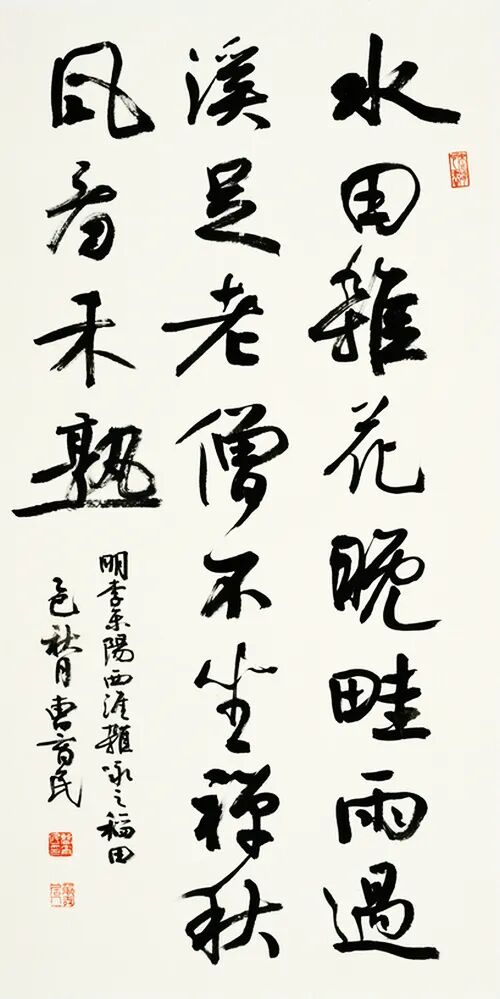 水田雜花晚畦雨過
溪足老僧不坐禪秋
風看禾熟
明李東陽西涯雜詠之稻田
秋月曹育民